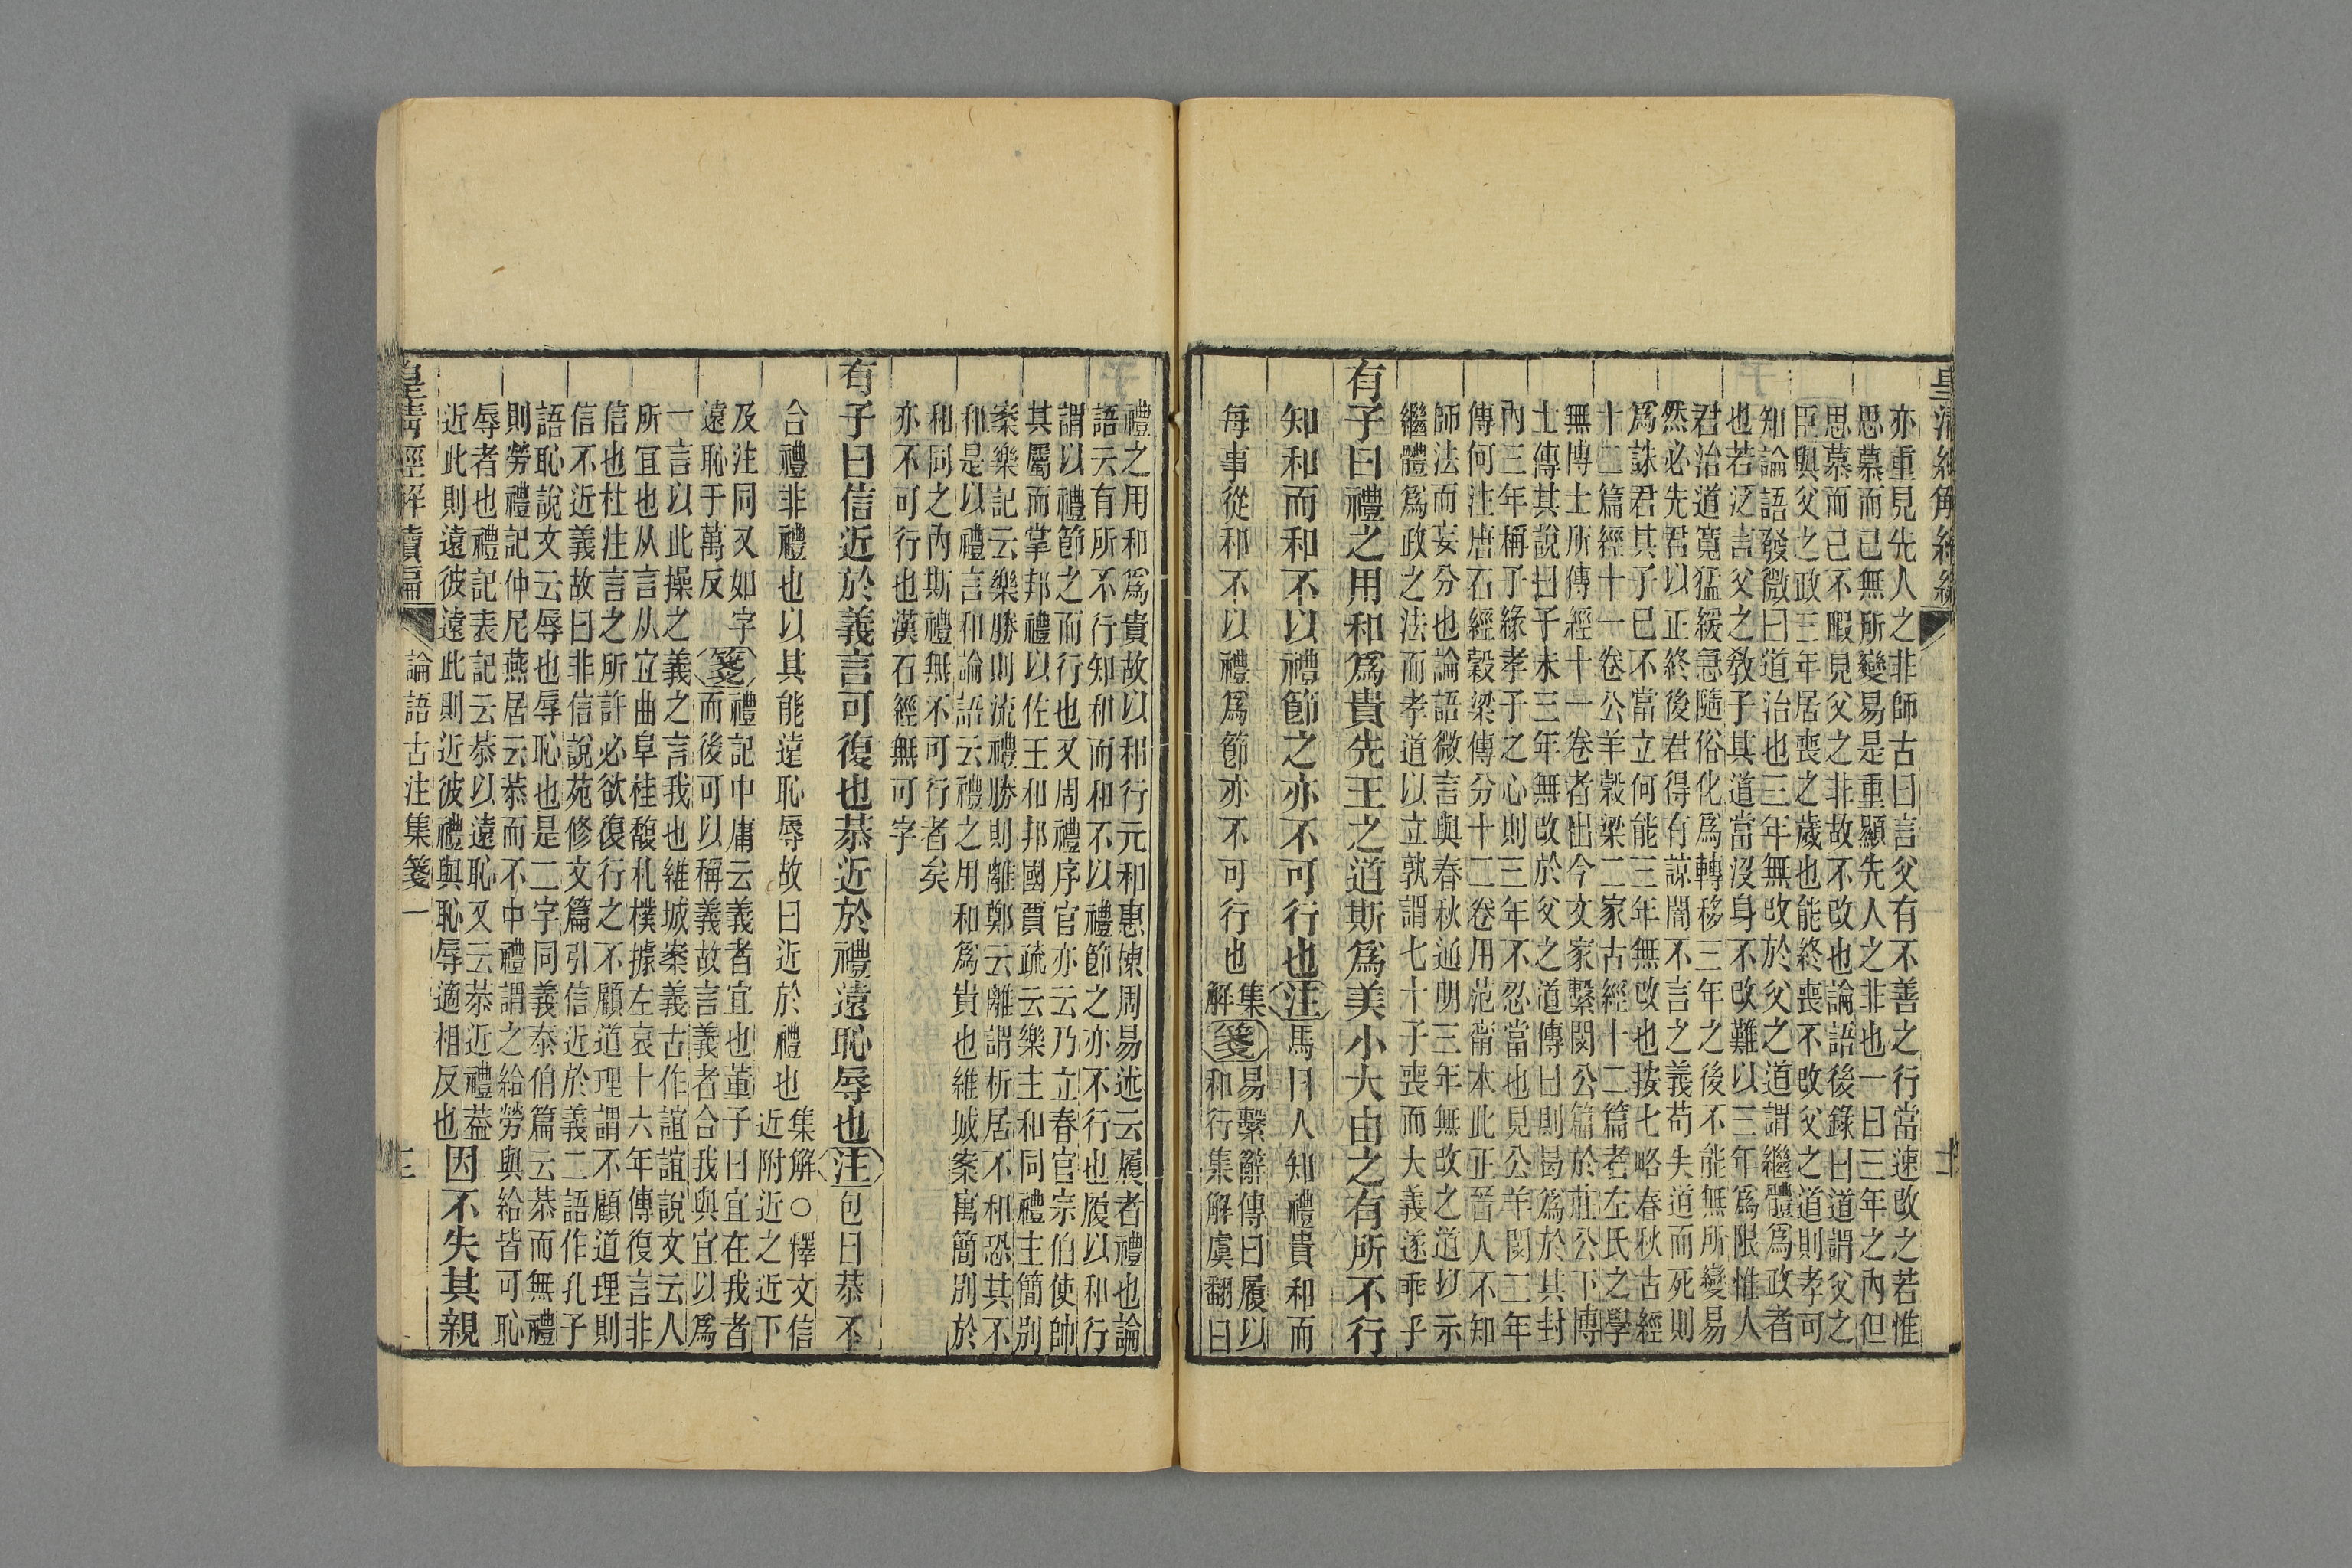 皇清經解續編
亦重見先人之非師古曰言父有不善之行當速改之若惟
思慕而已無所變易是重顯先人之非也一曰三年之內但
思慕而已不暇見父之非故不改也論語後錄曰道謂父之
臣與父之政三年居喪之歲也能終喪不改父之道則孝可
知論語發微曰道治也三年無改於父之道謂繼體爲政者
也若泛言父之敎子其道當沒身不改難以三年爲限惟人
君治道寬猛緩急隨俗化爲轉移三年之後不能無所變易
然必先君以正終後君得有諒闇不言之義苟失道而死則
爲誅君其子已不當立何能三年無改也按七略春秋古經
十二篇經十一卷公羊穀梁二家古經十二篇者左氏之學
無博士所傳經十一卷者出今文家繫閔公篇於莊公下博
士傳其說曰子未三年無改於父之道傳曰則曷爲於其封
內三年稱子緣孝子之心則三年不忍當也見公羊閔二年
傳何注唐石經穀梁傳分十二卷用范甯本此正晉人不知
師法而妄分也論語微言與春秋通明三年無改之道以示
繼體爲政之法而孝道以立孰謂七十子喪而大義遂乖乎
有子曰禮之用和爲貴先王之道斯爲美小大由之有所不行
知和而和不以禮節之亦不可行也注馬曰人知禮貴和而
每事從和不以禮爲節亦不可行也集解箋易繫辭傳曰履以
和行集解虞翻曰
禮之用和爲貴故以和行元和惠棟周易述云履者禮也論
語云有所不行知和而和不以禮節之亦不行也履以和行
謂以禮節之而行也又周禮序官亦云乃立春官宗伯使帥
其屬而掌邦禮以佐王和邦國賈疏云樂主和同禮主簡別
案樂記云樂勝則流禮勝則離鄭云離謂析居不和恐其不
和是以禮言和論語云禮之用和爲貴也維城案寓簡別於
和同之內斯禮無不可行者矣
亦不可行也漢石經無可字
有子曰信近於義言可復也恭近於禮遠恥辱也注包曰恭不
合禮非禮也以其能遠恥辱故曰近於禮也集解○釋文信
近附近之近下
及注同又如字
遠恥于萬反箋禮記中庸云義者宜也董子曰宜在我者
而後可以稱義故言義者合我與宜以爲
一言以此操之義之言我也維城案義古作誼誼說文云人
所宜也从言从宜曲阜桂馥札樸據左哀十六年傳復言非
信也杜注言之所許必欲復行之不顧道理謂不顧道理則
信不近義故曰非信說苑修文篇引信近於義二語作孔子
語恥說文云辱也辱恥也是二字同義泰伯篇云恭而無禮
則勞禮記仲尼燕居云恭而不中禮謂之給勞與給皆可恥
辱者也禮記表記云恭以遠恥又云恭近禮葢
近此則遠彼遠此則近彼禮與恥辱適相反也因不失其親
皇清經解續編
論語古注集箋一